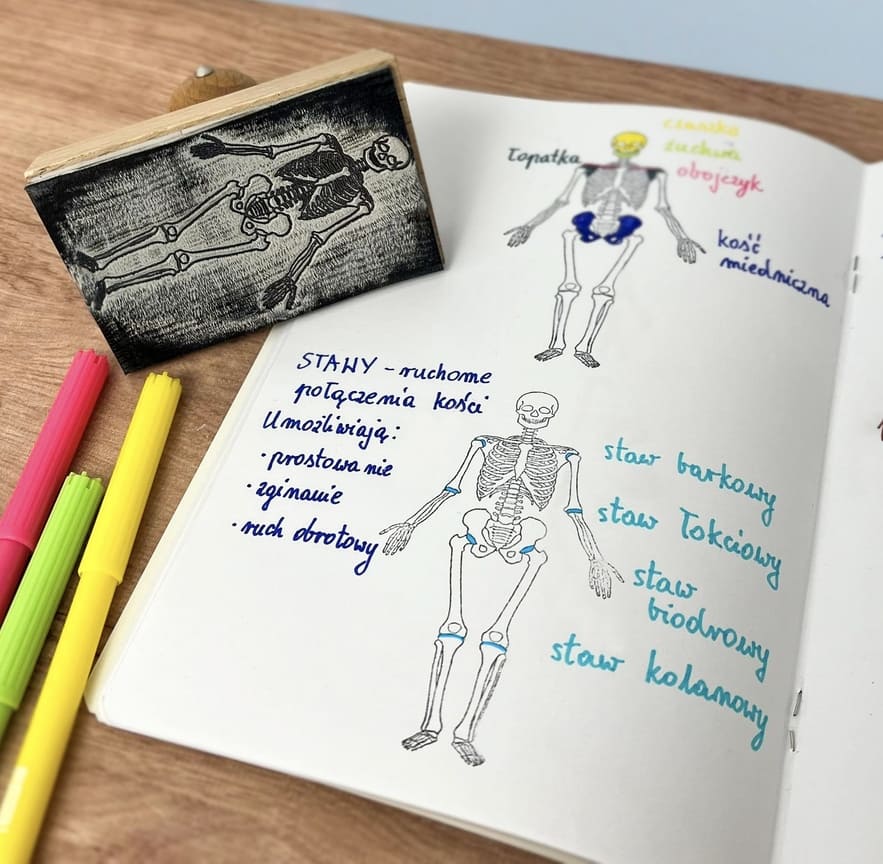 czaszka
żuchwa
łopatka
obojczyk
kość
miedniczna
STAWY - ruchome
połączenia kości
Umożliwiają:
• prostowanie
• zginanie
• ruch obrotowy
staw barkowy
staw łokciowy
staw
biodrowy
staw kolanowy